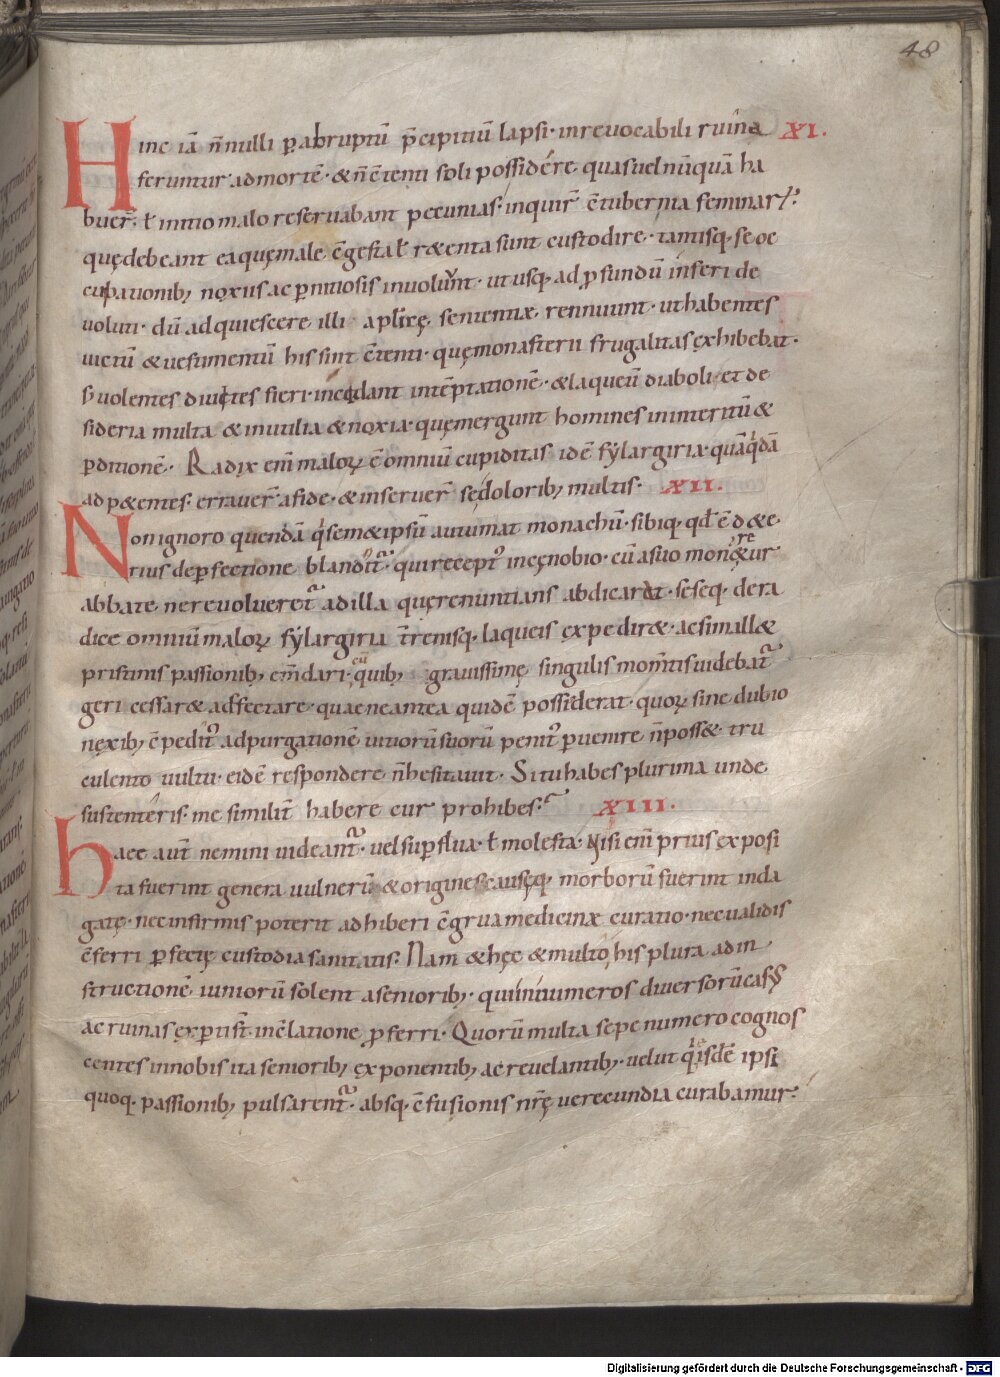 48
Hinc iā n̄nulli ꝑabruptū p̄cipitiū lapsi· inrevocabili ruina XI.
feruntur admortē· &n̄c̄tenti soli possidére· quasuelnūquā ha
buer̄· ł initio malo reservabant pecunias· inquir̄ c̄tubernia seminar
quędebeant eaquęmale c̄gesta ł r&enta sunt custodire· tantisq· seoc
cupationib; noxiis ac perniciosis involuŕ· ut usq· ad ꝓfundū inferi de
voluti· dū adquiescere illi aplicę sententiæ rennuunt· ut habentes
victū &vestimentū his sint c̄tenti· quęmonasterii frugalitas exhibebat·
s; volentes divites fieri· incidant intēptationē· &laqueū diaboli· et de
sideria multa &inutilia &noxia· quęmergunt homines ininteritū &
ꝑditionē· Radix eni malorꝝ ē omniū cupiditas idē fylargiria· quāq̇dā
adp&entes· erraver̄ afide· &inseruer̄ se doloribꝫ multis· XII.
Non ignoro quendā q̇ sem&ipsū autumat monachū· sibiq· qđ ē d&e
rius deꝑfectione blandit̄· qui recept᾿ incęnobio· cū asuo moner&ur
abbate· nerevolveret̄ adilla quęrenuntians abdicar&· seseq· dera
dice omniū malorꝝ fylargiria t̄renisq· laqueis expedir&· acsimall&
pristinis passionib; emdari· quib; cū gravissimę singulis momtis videbat̄
geri cessar& adfectare· quae neantea quidē possiderat· quorꝝ sine dubio
nęxib; ēpedit᾿ adpurgationē vitiorū suorū penit᾿ ꝑvenire n̄poss&· tru
culento vultu· eidē respondere n̄hesitavit· Situhabes plurima unde
sustentéris· me similit̄ habere cur prohibes· XIII.
haec aut̄ nemini videant̄· vel suꝑflua· ł molesta· Nisi eni prius exposi
ta fuerint genera vulnerū &origines causęq· morborū fuerint inda
gatę· nec infirmis poterit adhiberi c̄grua medicinæ curatio· nec validis
c̄ferri ꝑfectę custodia sanitatis· Nam &hęc &multo his plura ad in
structionē iuniorū solent asenioribꝫ· qui innumeros diversorū casꝰ
ac ruinas exꝑti st̄· inc̄latione ꝓferri· Quorū multa sepe numero cognos
centes innobis ita seniorib; exponentib; ac revelantib; velut q̇ isdē ipsi
quoq· passionib; pulsarent̄· absq· c̄fusionis nr̄ę verecundia curabamur·
Digitalisierung gefördert durch die Deutsche Forschungsgemeinschaft - DFG